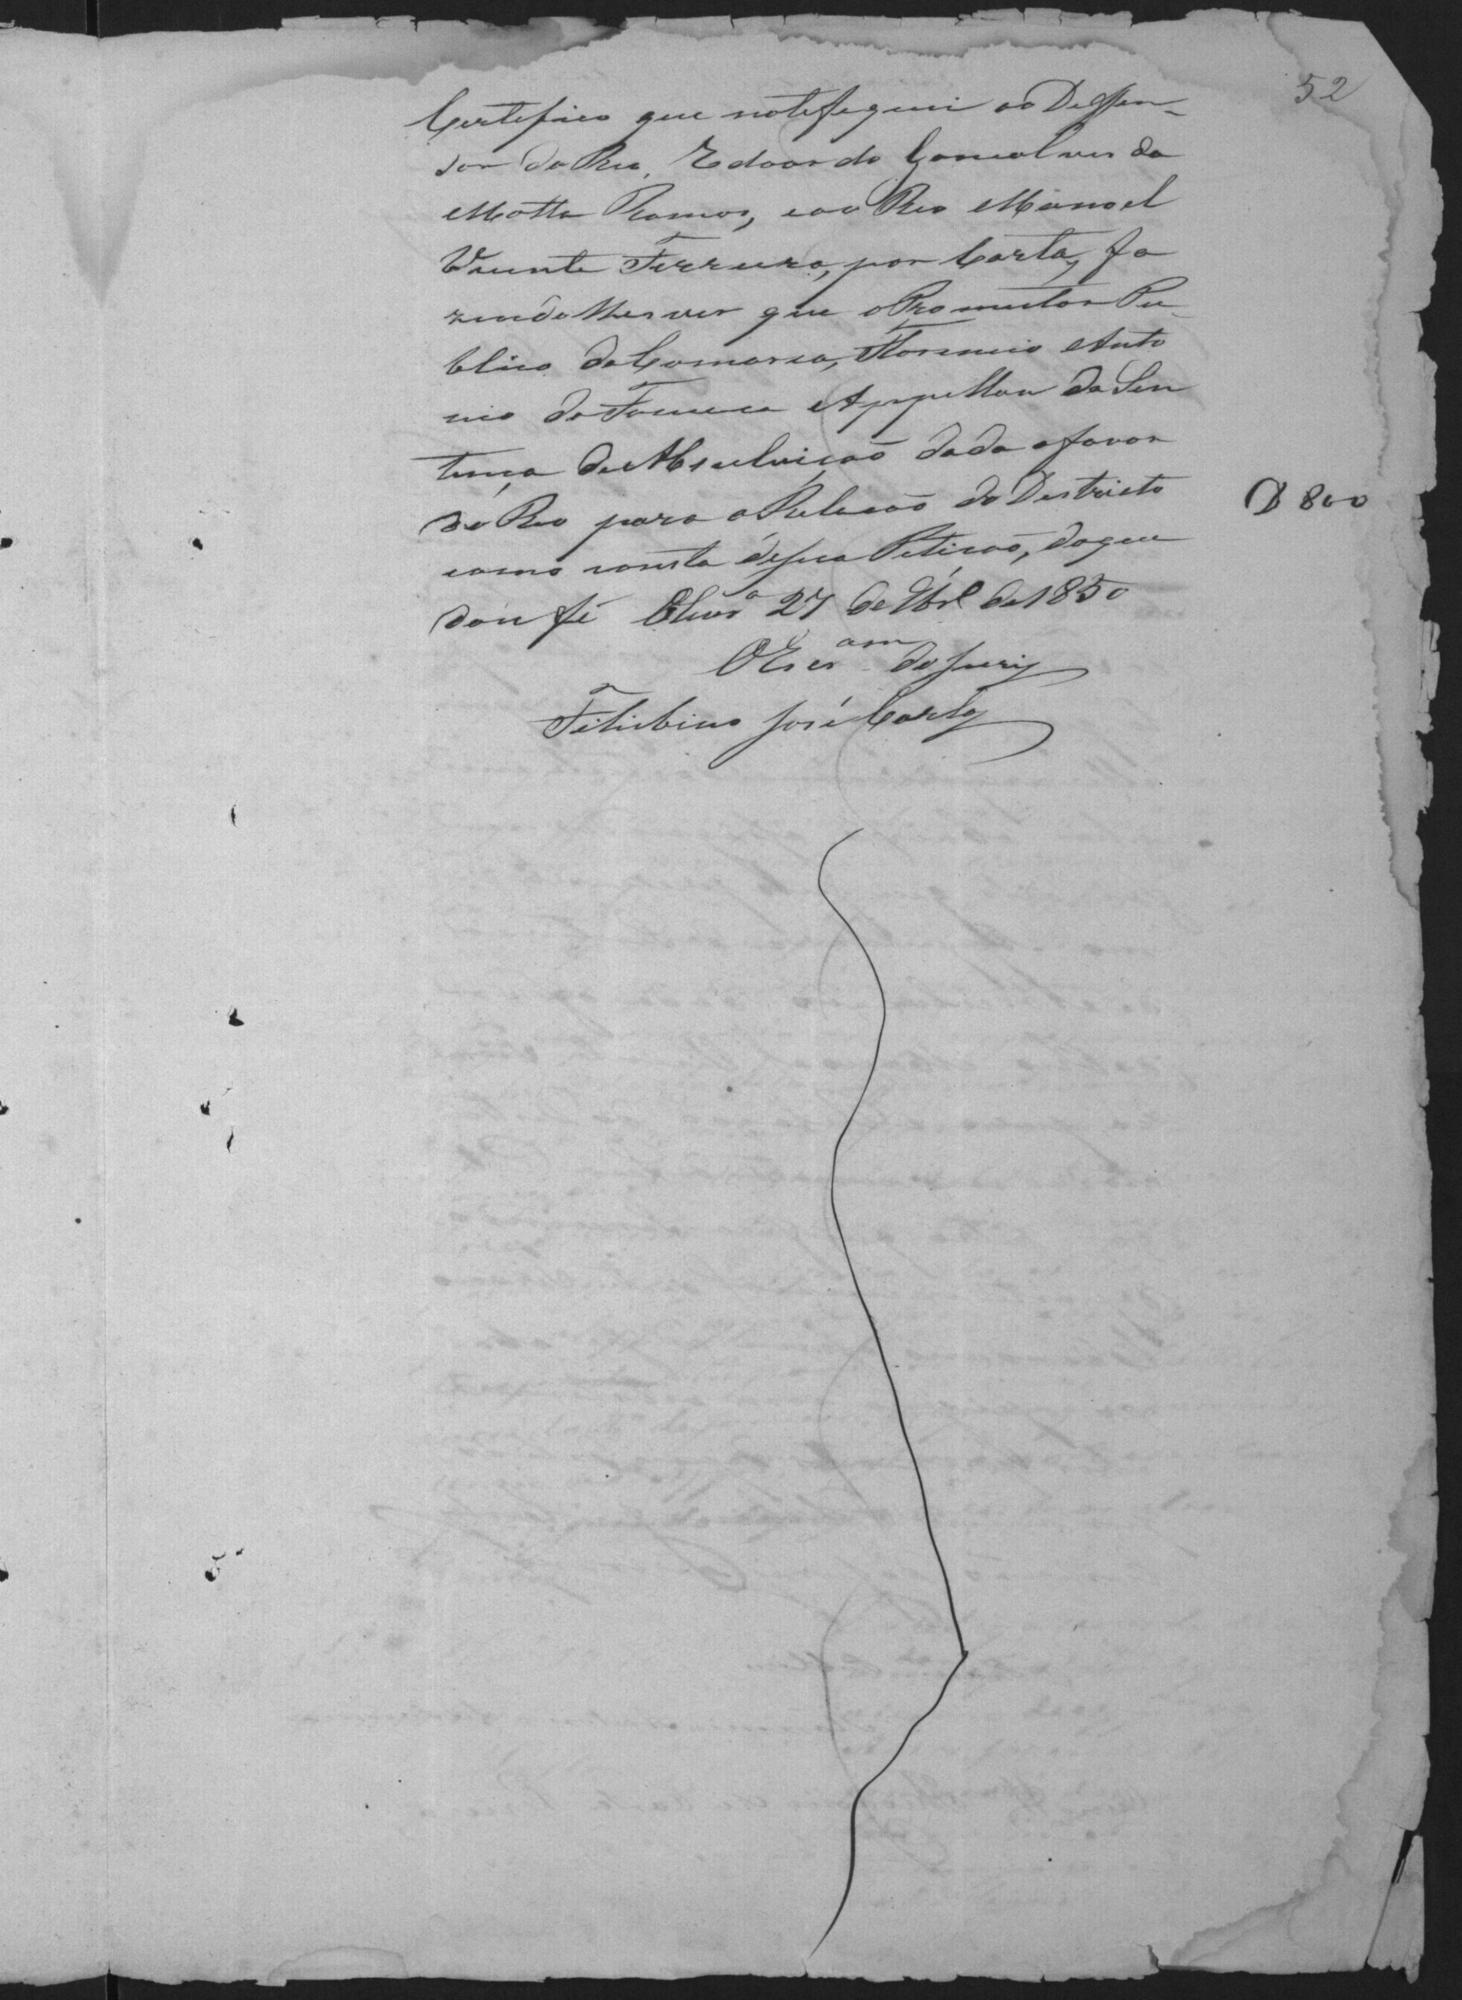 52
Certefico que notefequei ao Deffen-
sor do Reo, Edoardo Gonçalves da
Motta Ramos, eao Reo Manoel
Vicente Ferreira, por Carta, fa
zendolhes ver que o Promutor Pu-
blico da Comarca, Florencio Anto
nio da Fonceca Appellou da Sen
tença de Absulvicaõ dada afavor
do Reo para a Relacaõ do Destricto
como consta desua Peticaõ, doque
dou fé 27 de 1850
D 800
OEscr.am do Jury
José Costa